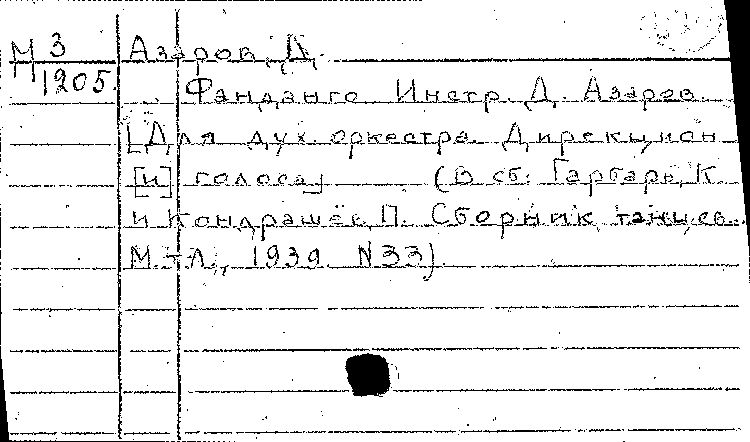 М 3 Азаров, Д.
1205. Фанданго. Инстр. Д. Азаров.
[Для дух. оркестра. Дирекцион
[и] голоса] (В сб: Гарбарь, К.
и Кондрашёв, П. Сборник танцев.
М.-Л., 1939. N33).